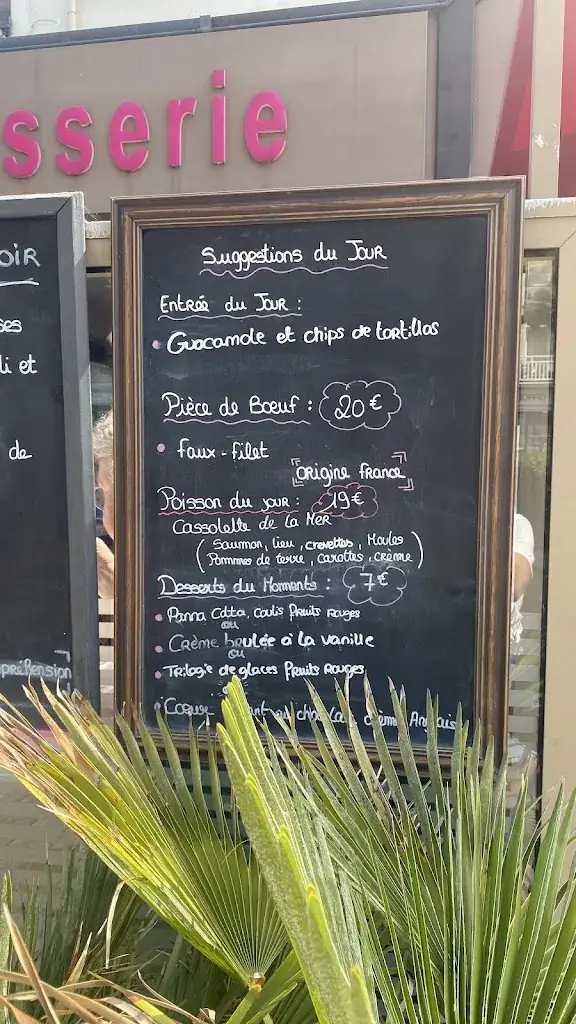 sserie
OIR
ses
li et
de
préhension
Suggestions du Jour
Entrée du Jour :
• Guacamole et chips de tortillas
Pièce de Bœuf : 20€
• Faux-filet
Origine France
Poisson du jour : 19€
Cassolette de la Mer
(Saumon, lieu, crevettes, Moules
Pommes de terre, carottes, crème)
Desserts du Moments : 7€
• Panna Cotta, Coulis fruits rouges
ou
• Crème brulée à la vanille
ou
• Trilogie de glaces fruits Rouges
• Coeur au chocolat, crème Anglais